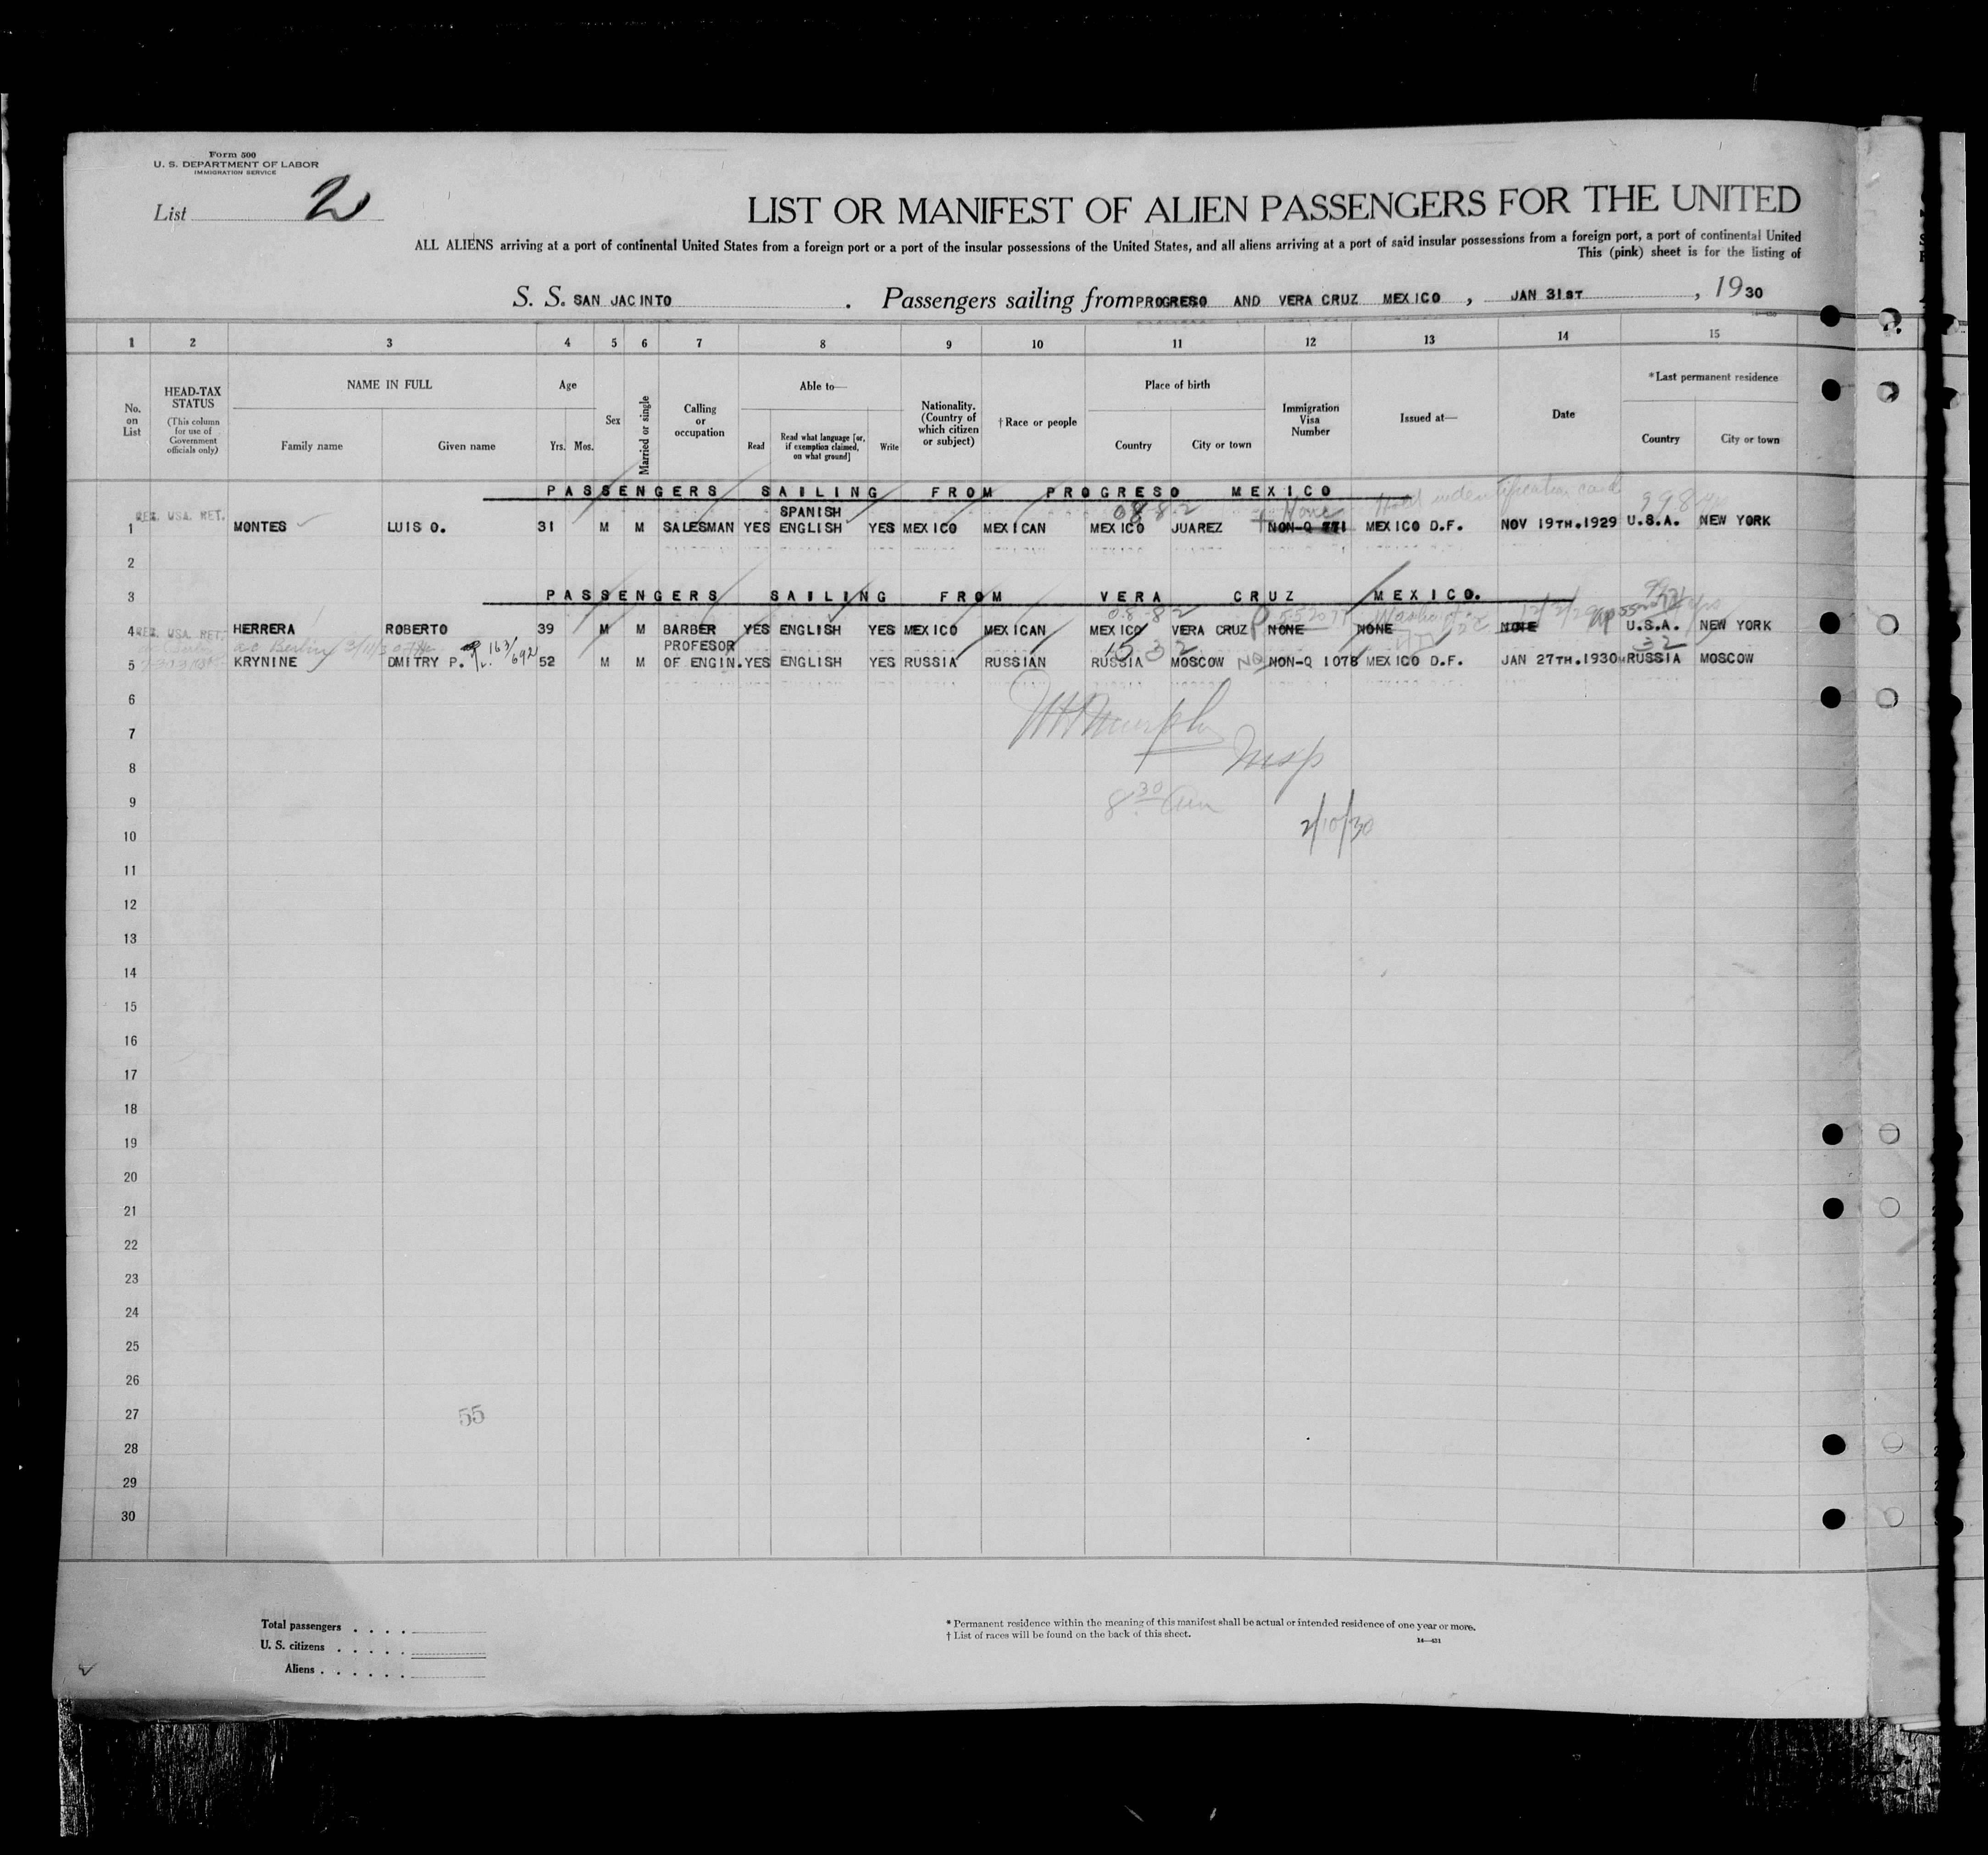 Form 500
U. S. DEPARTMENT OF LABOR
IMMIGRATION SERVICE
List 2
LIST OR MANIFEST OF ALIEN PASSENGERS FOR THE UNITED
ALL ALIENS arriving at a port of continental United States from a foreign port or a port of the insular possessions of the United States, and all aliens arriving at a port of said insular possessions from a foreign port, a port of continental United
This (pink) sheet is for the listing of
S. S. SAN JACINTO . Passengers sailing from PROGRESO AND VERA CRUZ MEXICO , JAN 31ST , 1930
1 2 3 4 5 6 7 8 9 10 11 12 13 14 15
No. on List
HEAD-TAX STATUS
(This column for use of Government officials only)
NAME IN FULL
Family name Given name
Age
Yrs. Mos.
Sex
Married or single
Calling or occupation
Able to—
Read
Read what language [or, if exemption claimed, on what ground]
Write
Nationality. (Country of which citizen or subject)
† Race or people
Place of birth
Country City or town
Immigration Visa Number
Issued at—
Date
*Last permanent residence
Country City or town
PASSENGERS SAILING FROM PROGRESO MEXICO
Hold indentification card
998
088-2
None
SPANISH
REG. USA. RET.
1 MONTES LUIS O. 31 M M SALESMAN YES ENGLISH YES MEXICO MEXICAN MEXICO JUAREZ NON-Q 771 MEXICO D.F. NOV 19TH.1929 U.S.A. NEW YORK
2
3 PASSENGERS SAILING FROM VERA CRUZ MEXICO.
08-82
P 552077 12/2/29
REG. USA. RET.
4 HERRERA ROBERTO 39 M M BARBER YES ENGLISH YES MEXICO MEXICAN MEXICO VERA CRUZ NONE NONE NONE U.S.A. NEW YORK
163/692
PROFESOR
15 32
32
5 KRYNINE DMITRY P. 52 M M OF ENGIN. YES ENGLISH YES RUSSIA RUSSIAN RUSSIA MOSCOW NQ NON-Q 1078 MEXICO D.F. JAN 27TH.1930 RUSSIA MOSCOW
6
Murphy
7
Insp
8
9
8 30 am
10
2/10/30
11
12
13
14
15
16
17
18
19
20
21
22
23
24
25
26
27
55
28
29
30
Total passengers . . . .
U. S. citizens . . . . .
Aliens . . . . . .
* Permanent residence within the meaning of this manifest shall be actual or intended residence of one year or more.
† List of races will be found on the back of this sheet.
14—431